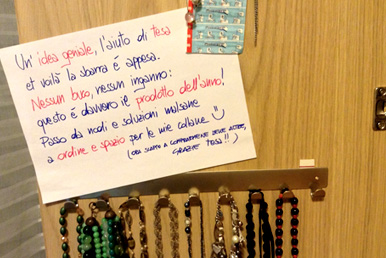 Un'idea geniale, l'aiuto di tesa
et voilà la sbarra é appesa.
Nessun buco, nessun inganno:
questo é davvero il prodotto dell'anno!
Passo da nodi e soluzioni malsane
a ordine e spazio per le mie collane.
GRAZIE TESA!!)